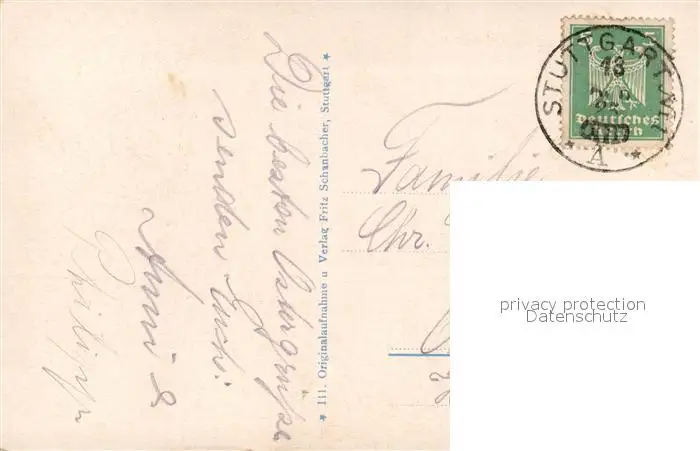 Die besten Ostergrüße
senden Euch:
Anni &
★ 111. Originalaufnahme u Verlag Fritz Schanbacher, Stuttgart ★
Familie
Chr.
5 5
Deutsches
STUTTGART
13
★ A ★
privacy protection
Datenschutz